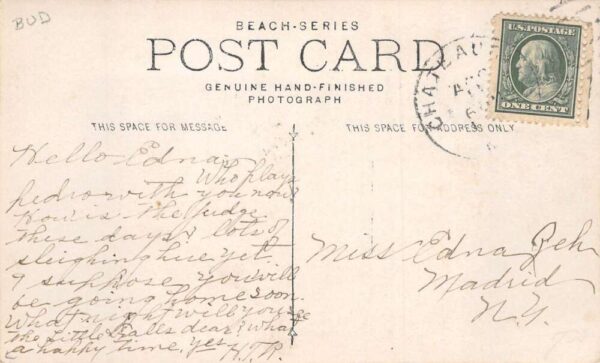 BUD
BEACH-SERIES
POST CARD
GENUINE HAND-FINISHED
PHOTOGRAPH
THIS SPACE FOR MESSAGE
THIS SPACE FOR ADDRESS ONLY
U.S. POSTAGE
ONE CENT
CHATEAU
Hello Edna
Who plays
pedro with you now
How is the Judge
these days? lots of
sleighing here yet.
I suppose you will
be going home soon.
What night will you see
the little Falls dear? What
a happy time, yes H.T.R.
Miss Edna Zeh
Madrid
N.Y.